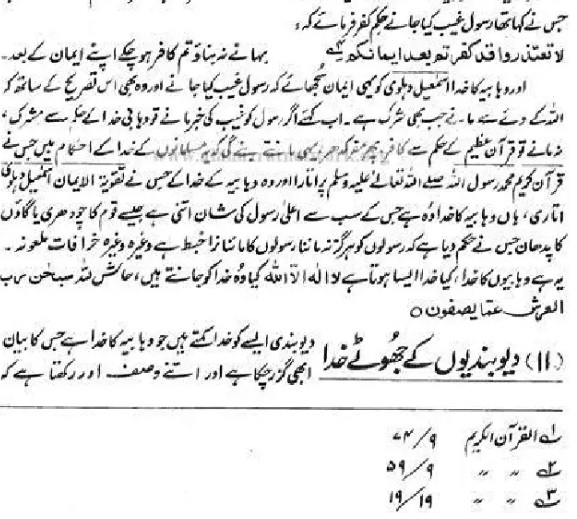 جس نے کہا تھا رسول غیب کیا جانے حکم کفر فرمائے کہ:
لا تعتذروا قد کفرتم بعد ایمانکم بہانے نہ بناؤ تم کافر ہوچکے اپنے ایمان کے بعد۔
اور وہابیہ کا خدا اسمٰعیل دہلوی کو یہی ایمان سُجھائے کہ رسول غیب کیا جانے اور وہ بھی اس تصریح کے ساتھ کہ
اللہ کے دئے سے مانے جب بھی شرک ہے۔ اب کہئے اگر رسول کو غیب کی خبر مانے تو وہابی خدا کے حکم سے مشرک،
نہ مانے تو قرآن عظیم کے حکم سے کافر پھر مفر کدھر، یہی مانتے بنے گی کہ مسلمانوں کے خدا کے احکام میں جس نے
قرآن کریم محمد رسول اللہ صلے اللہ تعالٰی علیہ وسلم پر اتارا اور وہ وہابیہ کے خدا کے جس نے تقویۃ الایمان اسمٰعیل دہلوی پر
اتاری، ہاں وہابیہ کا خدا وہ ہے جس کے سب سے اعلیٰ رسول کی شان اتنی ہے جیسے قوم کا چودھری یا گاؤں
کا پدھان جس نے حکم دیا ہے کہ رسولوں کو ہرگز نہ ماننا رسولوں کا ماننا نرا خبط ہے وغیرہ وغیرہ خرافات ملعونہ۔
یہ ہے وہابیوں کا خدا، کیا خدا ایسا ہوتا ہے لا الٰہ الا اللہ کیا وہ خدا کو جانتے ہیں، حاش للہ سبحٰن رب
العرش عما یصفون ○
(۱۱) دیوبندیوں کے جھوٹے خدا دیوبندی ایسے کو خدا کہتے ہیں جو وہابیہ کا خدا ہے جس کا بیان
ابھی گزر چکا ہے اور اتنے وصف اور رکھتا ہے کہ
لہ القرآن الکریم ۹/ ۷۴
۲ " " ۹/ ۵۹
۳ " " ۱۹/ ۱۹